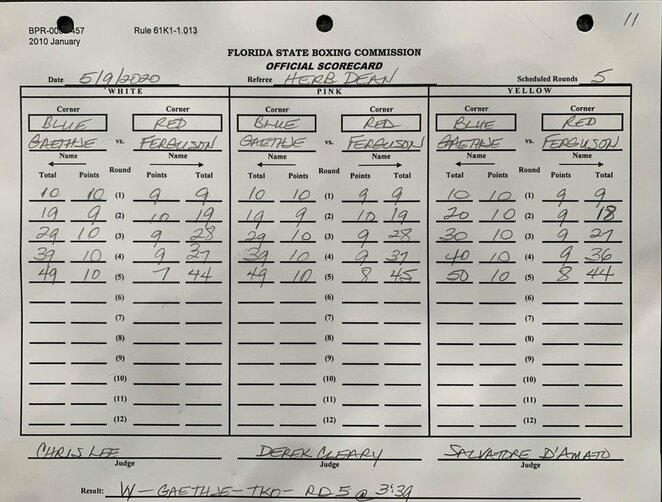 11
BPR-00 457 Rule 61K1-1.013
2010 January
FLORIDA STATE BOXING COMMISSION
OFFICIAL SCORECARD
Date 5/9/2020 Referee HERB DEAN Scheduled Rounds 5
WHITE PINK YELLOW
Corner Corner Corner Corner Corner Corner
BLUE RED BLUE RED BLUE RED
GAETHJE vs. FERGUSON GAETHJE vs. FERGUSON GAETHJE vs. FERGUSON
Name Name Name Name Name Name
Total Points Round Points Total Total Points Round Points Total Total Points Round Points Total
10 10 (1) 9 9 10 10 (1) 9 9 10 10 (1) 9 9
19 9 (2) 10 19 19 9 (2) 10 19 20 10 (2) 9 18
29 10 (3) 9 28 29 10 (3) 9 28 30 10 (3) 9 27
39 10 (4) 9 37 39 10 (4) 9 37 40 10 (4) 9 36
49 10 (5) 7 44 49 10 (5) 8 45 50 10 (5) 8 44
(6) (6) (6)
(7) (7) (7)
(8) (8) (8)
(9) (9) (9)
(10) (10) (10)
(11) (11) (11)
(12) (12) (12)
CHRIS LEE DEREK CLEARY SALVATORE D'AMATO
Judge Judge Judge
Result: W - GAETHJE - TKO - RD 5 @ 3:39